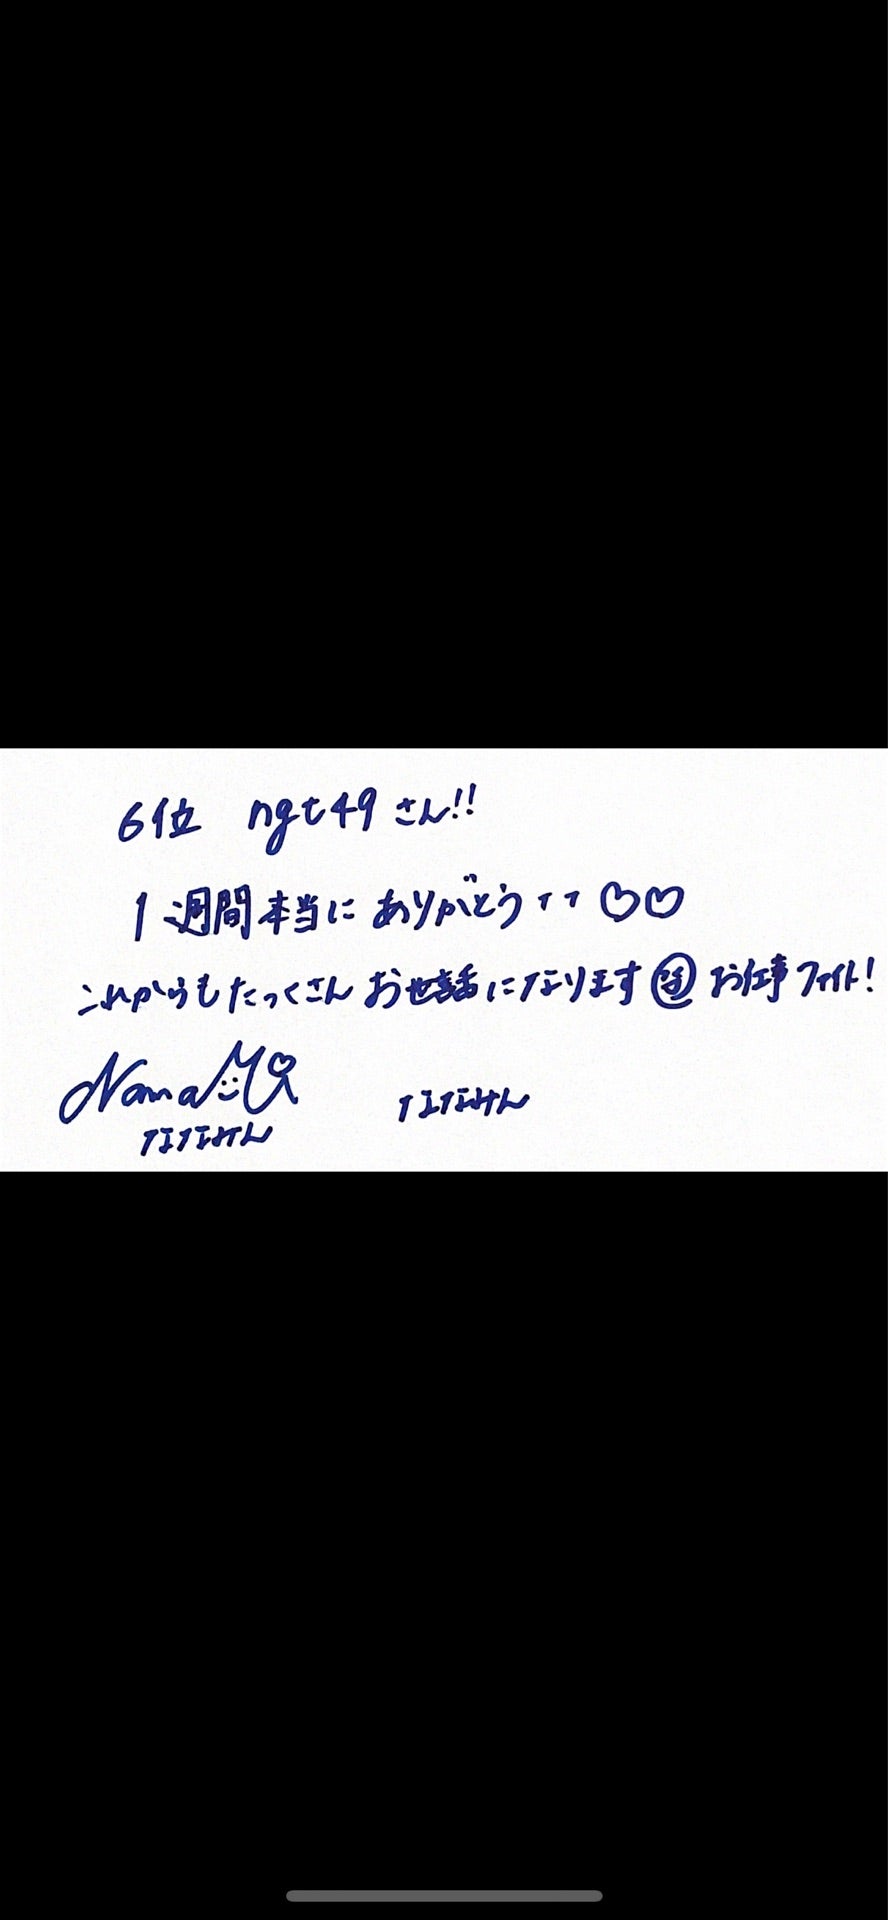 6位 ngt49さん!!
1週間本当にありがとうTT♡♡
これからもたっくさんお世話になります お仕事ファイト!
Nana
ななみん ななみん